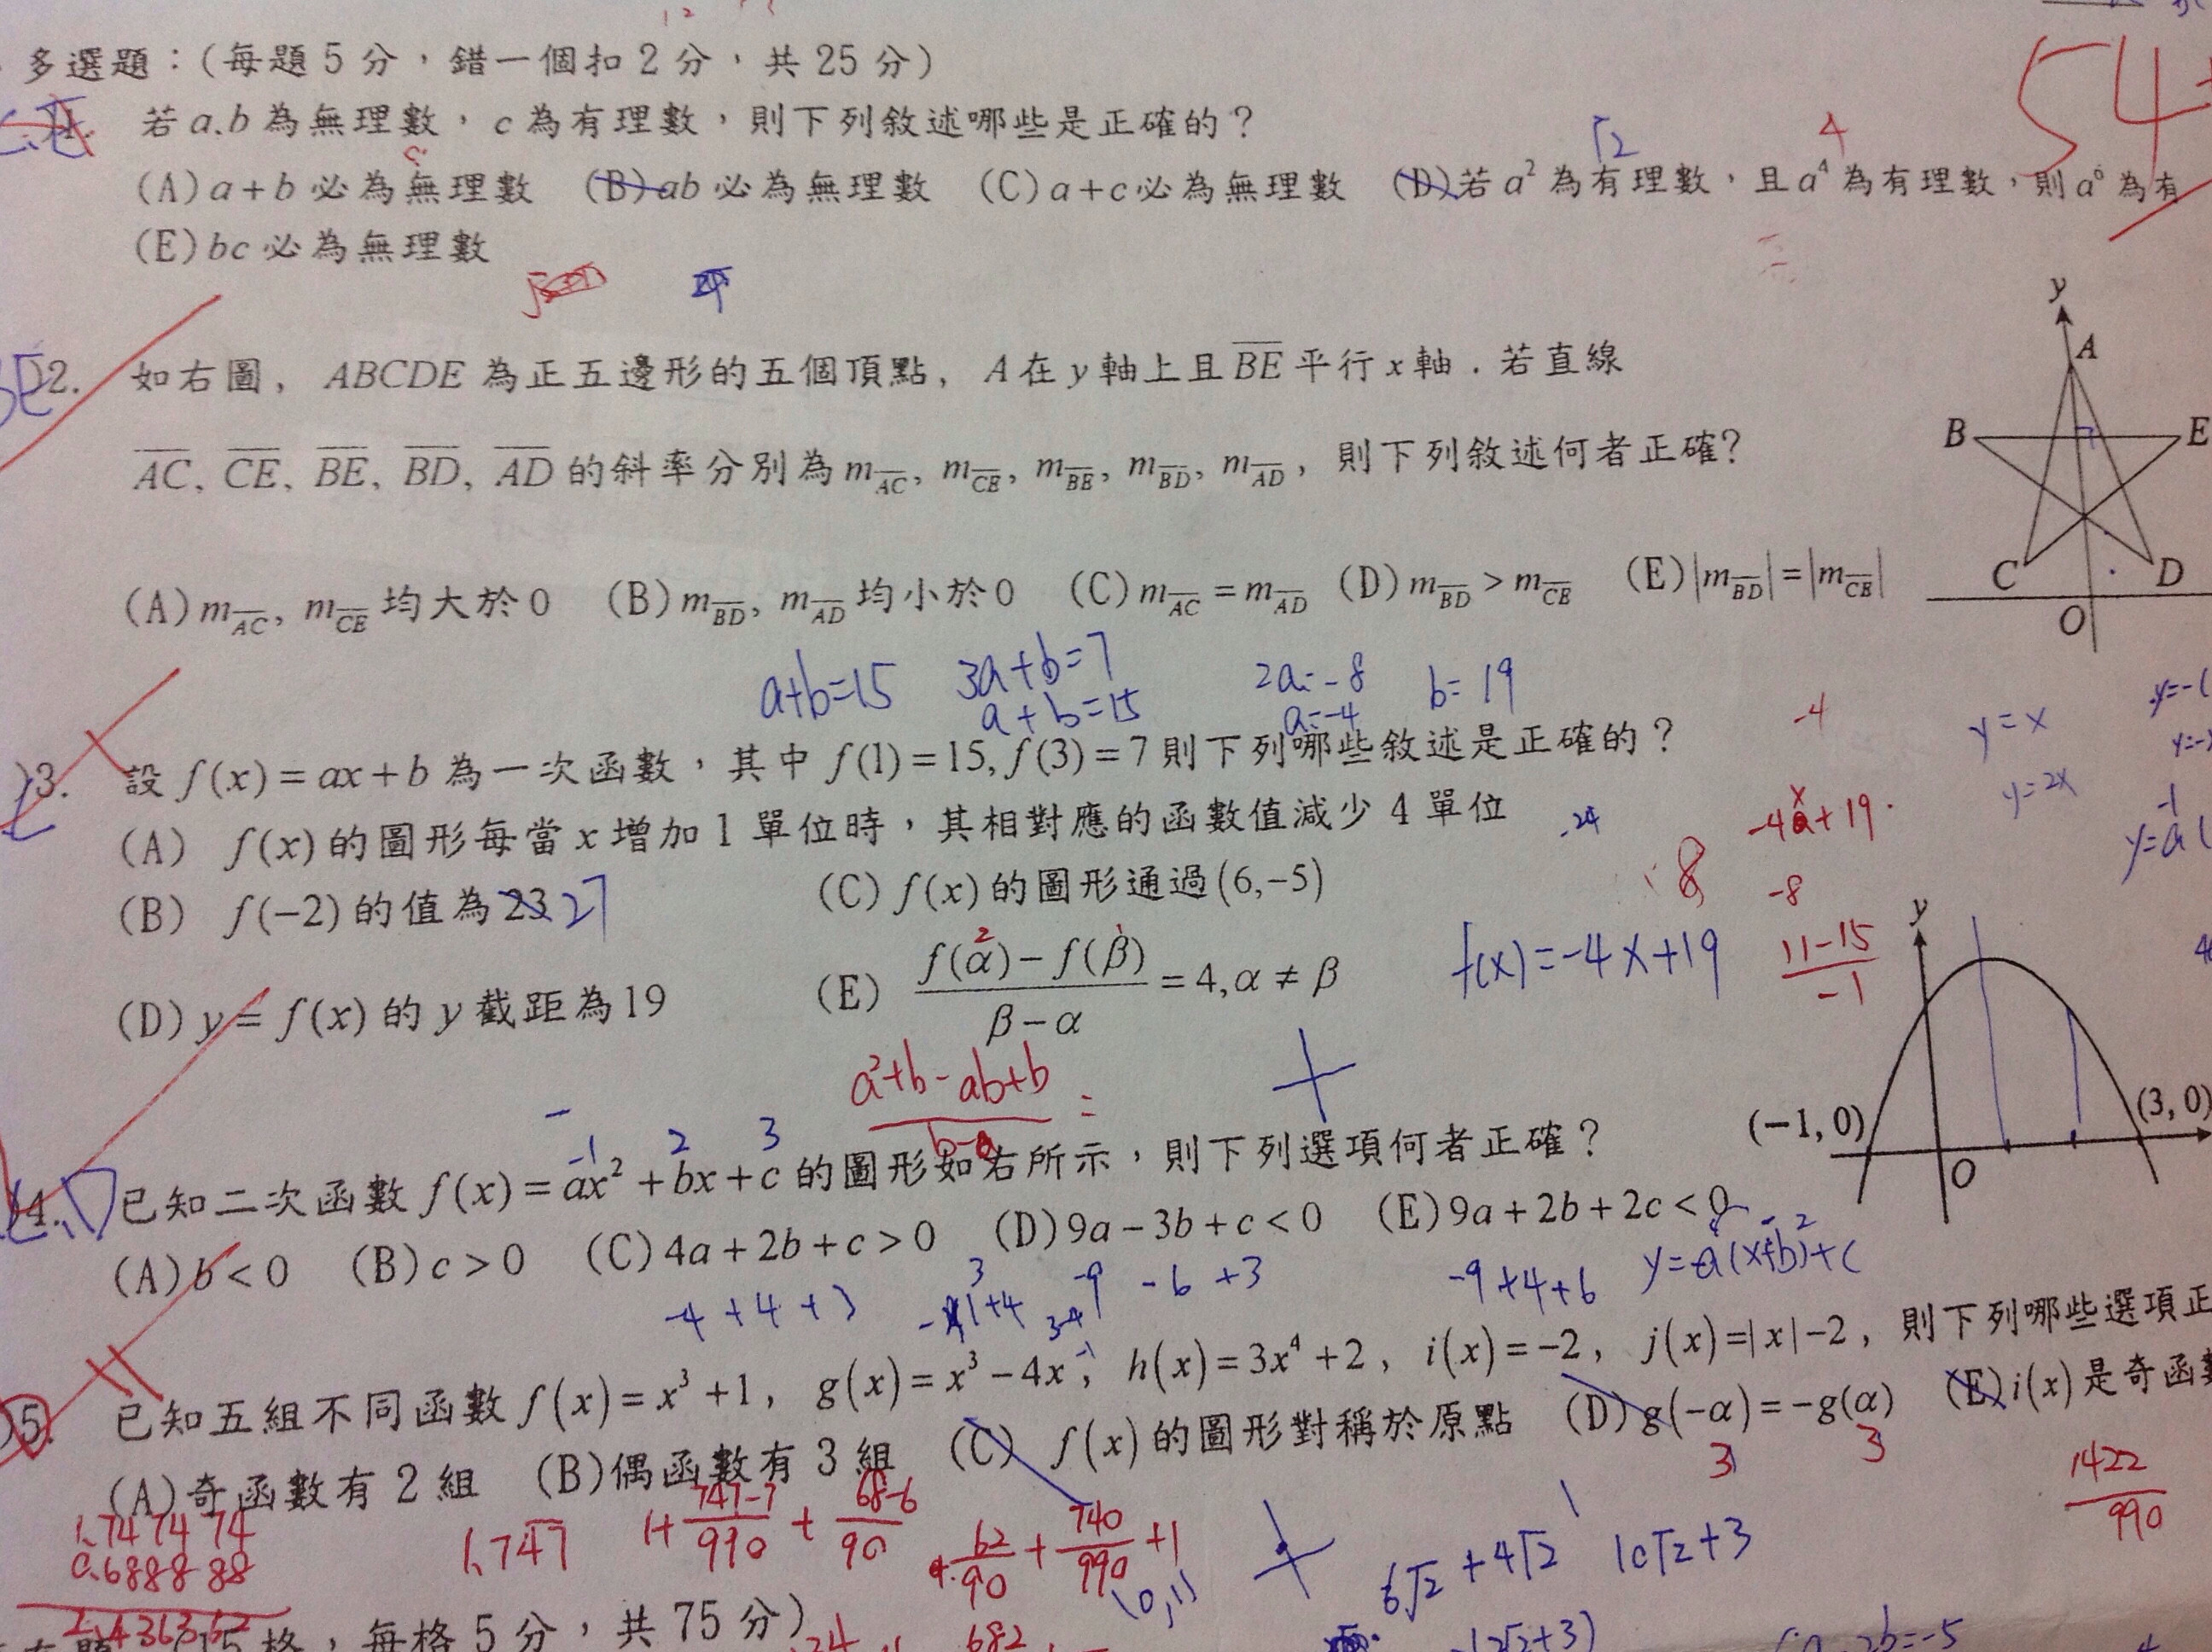 多選題：(每題5分，錯一個扣2分，共25分)
54
1. 若 a.b 為無理數，c 為有理數，則下列敘述哪些是正確的？
√2
4
(A) a+b 必為無理數 (B) ab 必為無理數 (C) a+c 必為無理數 (D) 若 a² 為有理數，且 a⁴ 為有理數，則 a⁶ 為有
(E) bc 必為無理數
2. 如右圖, ABCDE 為正五邊形的五個頂點, A 在 y 軸上且 \overline{BE} 平行 x 軸．若直線
\overline{AC}, \overline{CE}, \overline{BE}, \overline{BD}, \overline{AD} 的斜率分別為 m_{\overline{AC}}, m_{\overline{CE}}, m_{\overline{BE}}, m_{\overline{BD}}, m_{\overline{AD}}, 則下列敘述何者正確?
y
A
B
E
C
D
O
(A) m_{\overline{AC}}, m_{\overline{CE}} 均大於0 (B) m_{\overline{BD}}, m_{\overline{AD}} 均小於0 (C) m_{\overline{AC}} = m_{\overline{AD}} (D) m_{\overline{BD}} > m_{\overline{CE}} (E) |m_{\overline{BD}}| = |m_{\overline{CE}}|
a+b=15 3a+b=7 2a=-8 b=19
a+b=15 a=-4
-4
y=x
y=2x
3. 設 f(x)=ax+b 為一次函數，其中 f(1)=15, f(3)=7 則下列哪些敘述是正確的？
(A) f(x) 的圖形每當 x 增加 1 單位時，其相對應的函數值減少 4 單位
(B) f(-2) 的值為 23 27 (C) f(x) 的圖形通過 (6,-5)
-8
(D) y=f(x) 的 y 截距為19 (E) \frac{f(α)-f(β)}{β-α} = 4, α ≠ β
f(x)=-4x+19
\frac{11-15}{-1}
y
(-1, 0)
(3, 0)
O
\frac{a²+b-ab+b}{b-a} =
-1 2 3
4. 已知二次函數 f(x)=ax²+bx+c 的圖形如右所示，則下列選項何者正確？
(A) b<0 (B) c>0 (C) 4a+2b+c>0 (D) 9a-3b+c<0 (E) 9a+2b+2c<0
-4+4+3
-9 -6 +3
-9+4+6
5. 已知五組不同函數 f(x)=x³+1, g(x)=x³-4x, h(x)=3x⁴+2, i(x)=-2, j(x)=|x|-2, 則下列哪些選項正
(A) 奇函數有 2 組 (B) 偶函數有 3 組 (C) f(x) 的圖形對稱於原點 (D) g(-α)=-g(α) (E) i(x) 是奇函數
3 3
1.747474
0.688888
1.747
1+\frac{747-7}{990}+\frac{68-6}{90}
\frac{62}{90}+\frac{740}{990}+1
(0,1)
6√2+4√2
10√2+3
\frac{1422}{990}
2.436362
格，每格5分，共75分)
682